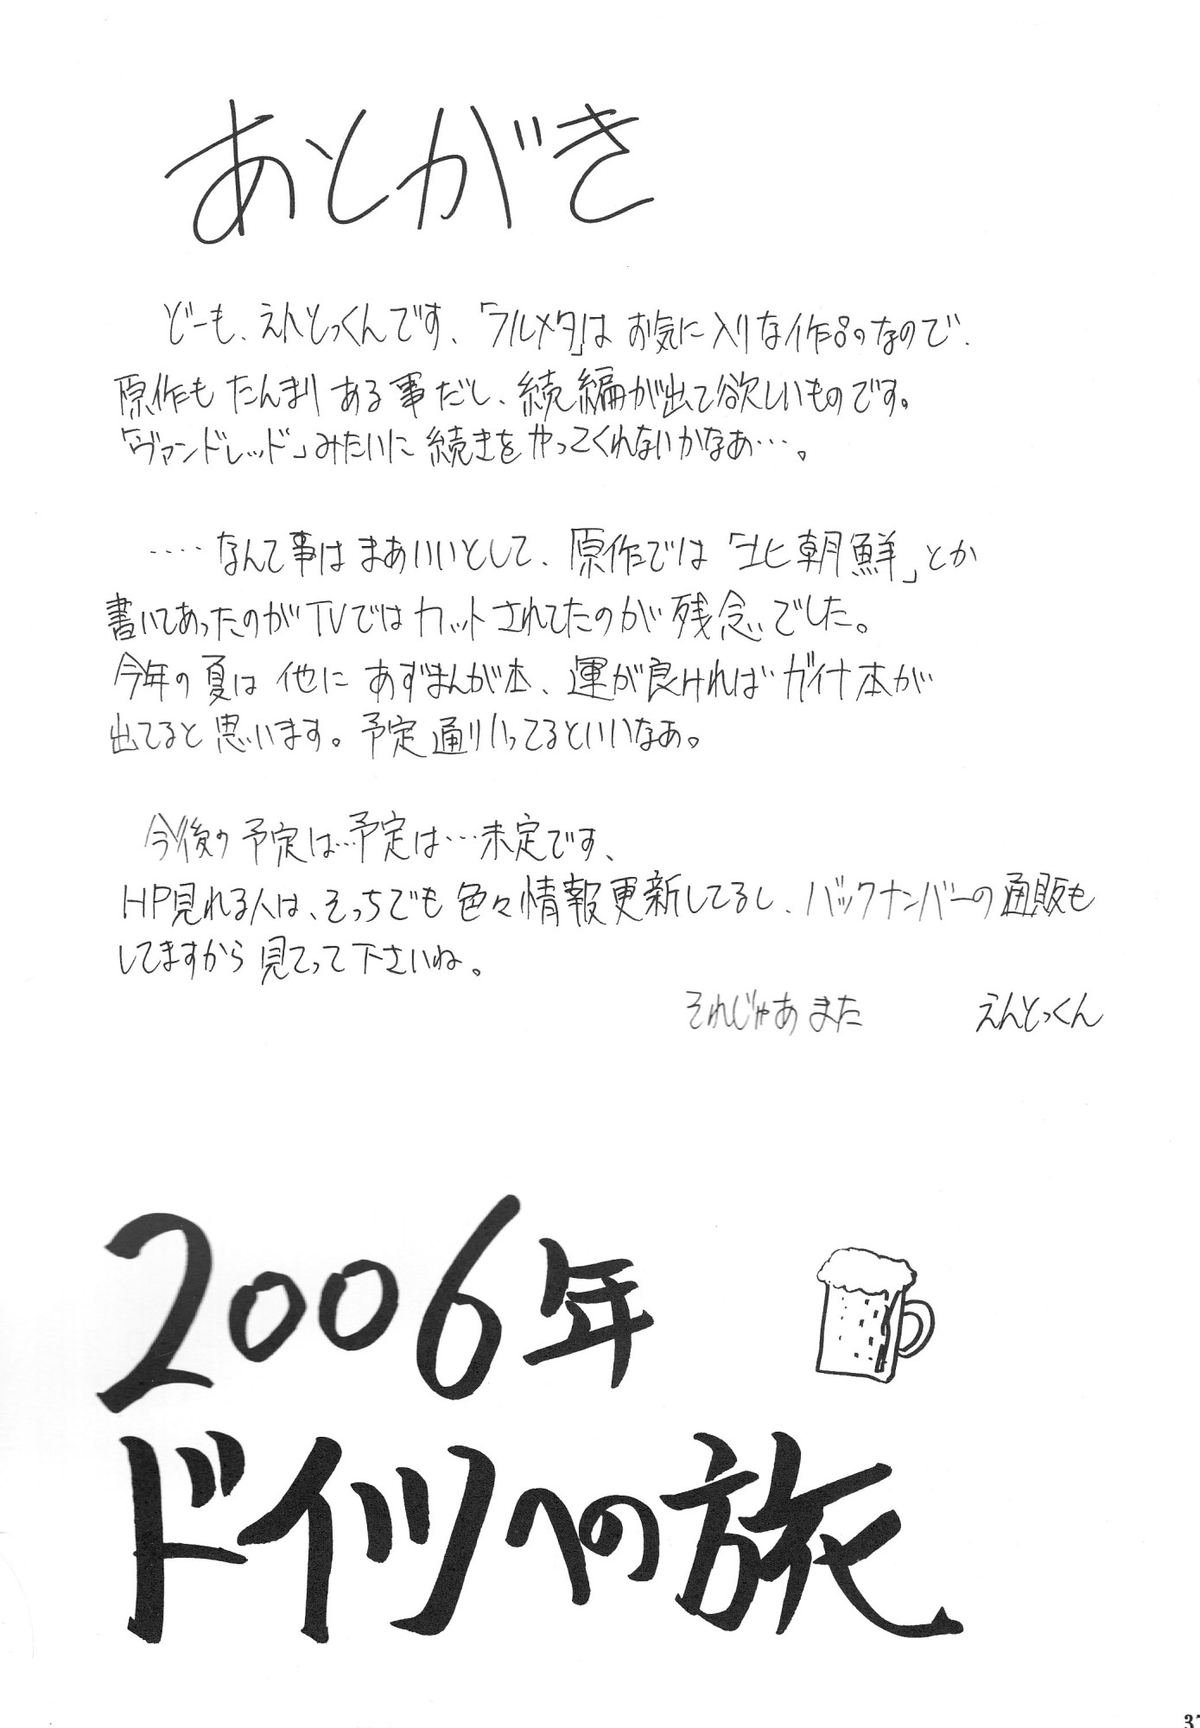 あとがき
どーも、えんとっくんです、「フルメタ」は お気に入りな作品のなので、
原作も たんまり ある事だし、続編が出て欲しいものです。
「ヴァンドレッド」みたいに 続きを やってくれないかなあ…。
‥‥なんて事は まあいいとして、原作では 「北朝鮮」とか
書いてあったのがTVではカットされてたのが 残念でした。
今年の夏は 他に あずまんが本、運が良ければ ガイナ本が
出てると思います。予定通りいってるといいなあ。
今後の予定は‥予定は…未定です、
HP見れる人は、そっちでも 色々情報更新してるし、バックナンバーの通販も
してますから 見てって下さいね。
それじゃあ また えんとっくん
2006年
ドイツへの旅
37